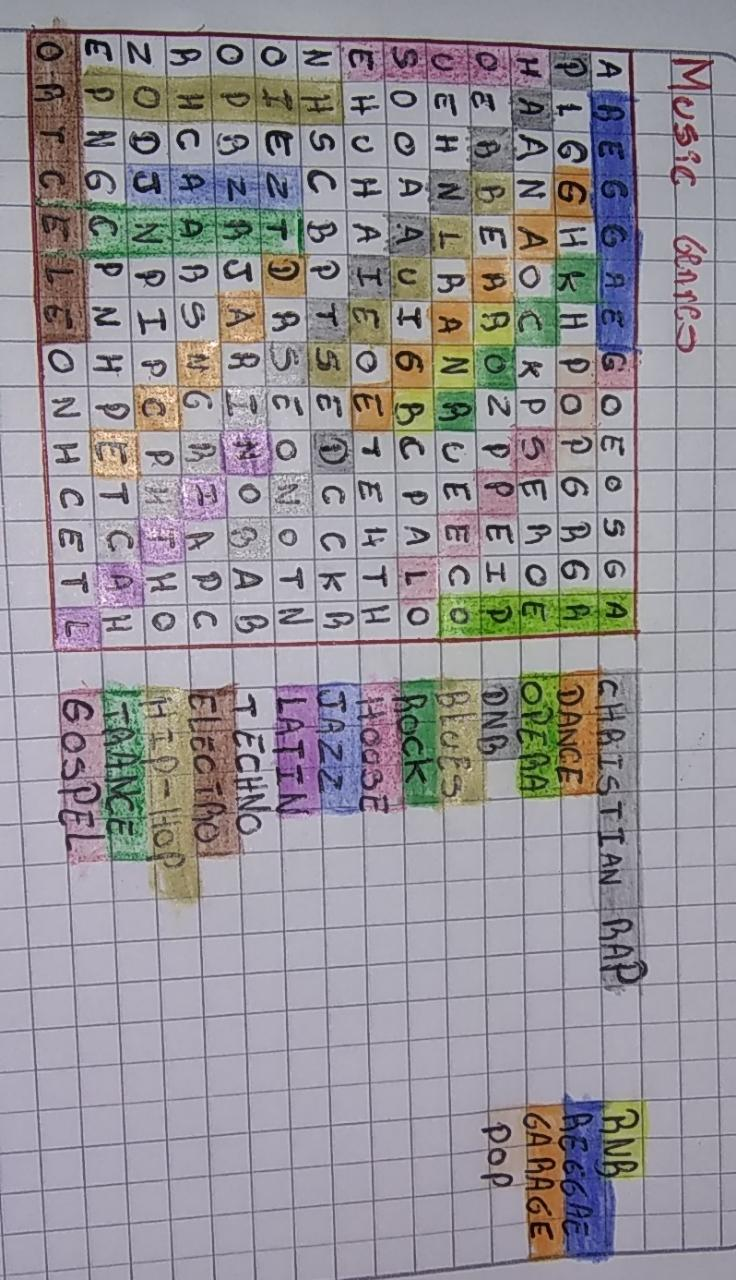 Music Genres
A R E G G A E G O E O S G A
P I G G H K H P O P G R G R
H A A N A O C K P S E R O E
O E R B E R R O Z P P E I P
U E H N L R A N R U E E C O
S O O A A U I G B C P A L O
E H U H A I E O E T E H T H
N H S C B P T S E D C C K R
O I E Z T D R S E O N O T N
O P R Z R J A R I N O B A B
R H C A A R S N G R I A P C
Z O D J N P I P C P H T H O
E P N G C P N H P E T C A H
O R T C E L E O N H C E T L
CHRISTIAN RAP
DANCE
OPERA
DNB
BLUES
ROCK
HOUSE
JAZZ
LATIN
TECHNO
ELECTRO
HIP-HOP
TRANCE
GOSPEL
RNB
REGGAE
GARAGE
POP